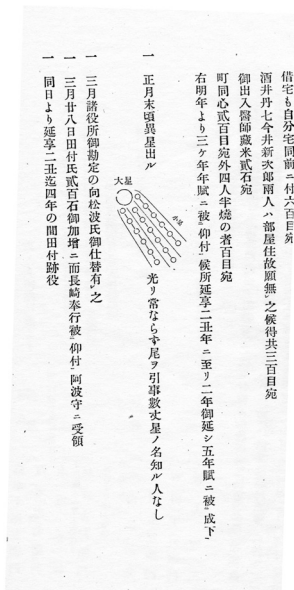 借宅も自分宅同前ニ付六百目宛
酒井丹七今井新次郎兩人ハ部屋住故願無レ之候得共三百目宛
御出入醫師藏米貳石宛
町同心貳百目宛外四人半燒の者百目宛
右明年より三ケ年年賦ニ被二仰付一候所延享二丑年ニ至リ二年御延シ五年賦ニ被二成下一
一 正月末頃異星出ル
大星
小星
光リ常ならず尾ヲ引事數丈星ノ名知ル人なし
一 三月諸役所御勘定の向松波氏御仕替有レ之
一 三月廿八日田付氏貳百石御加增ニ而長崎奉行被二仰付一阿波守ニ受領
一 同日より延享二丑迄四年の間田付跡役